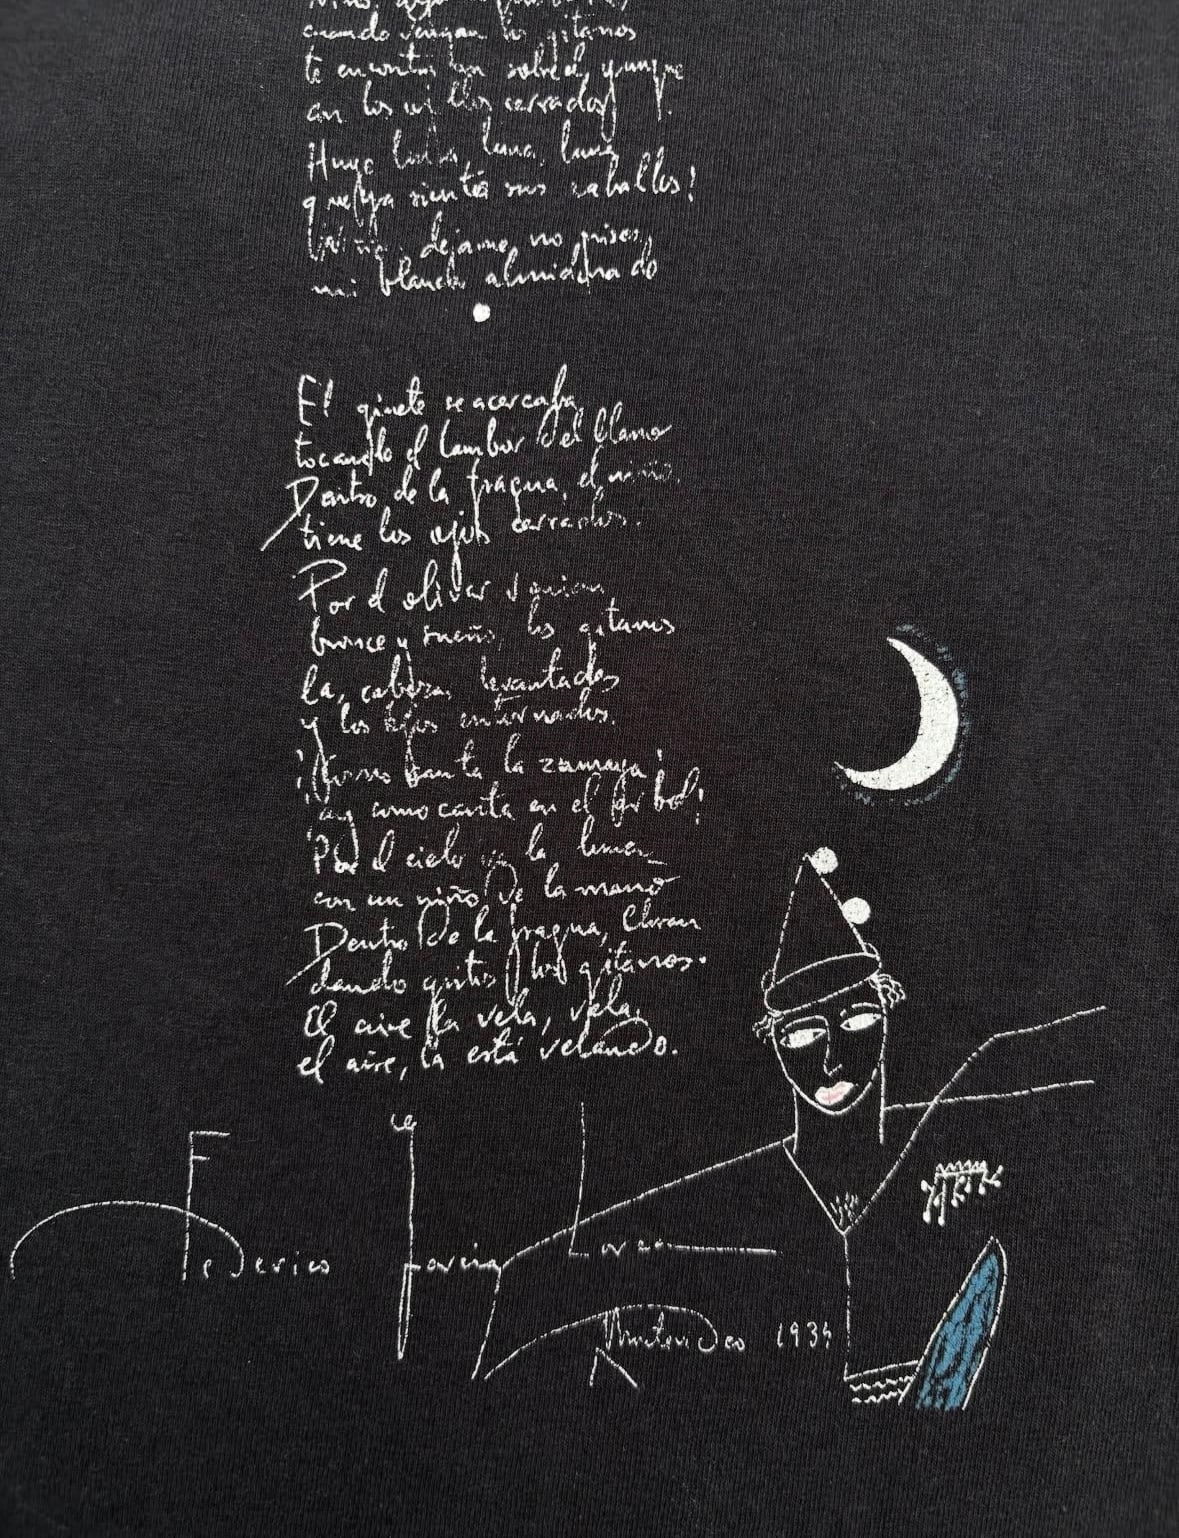 Niño,
cuando vengan los gitanos
te encontrarán sobre el yunque
con los ojillos cerrados
Huye luna, luna, luna
que ya siento sus caballos!
dejame, no pises,
mi blancor almidonado
El ginete se acercaba
tocando el tambor del llano
Dentro de la fragua, el niño,
tiene los ojos cerrados.
Por el olivar venian
bronce y sueño, los gitanos
las cabezas levantadas
y los ojos entornados.
¡Como canta la zumaya!
¡ay como canta en el arbol!
Por el cielo va la luna
con un niño de la mano
Dentro de la fragua, lloran
dando gritos los gitanos.
El aire la vela, vela,
el aire, la está velando.
Federico García Lorca
Montevideo 1934